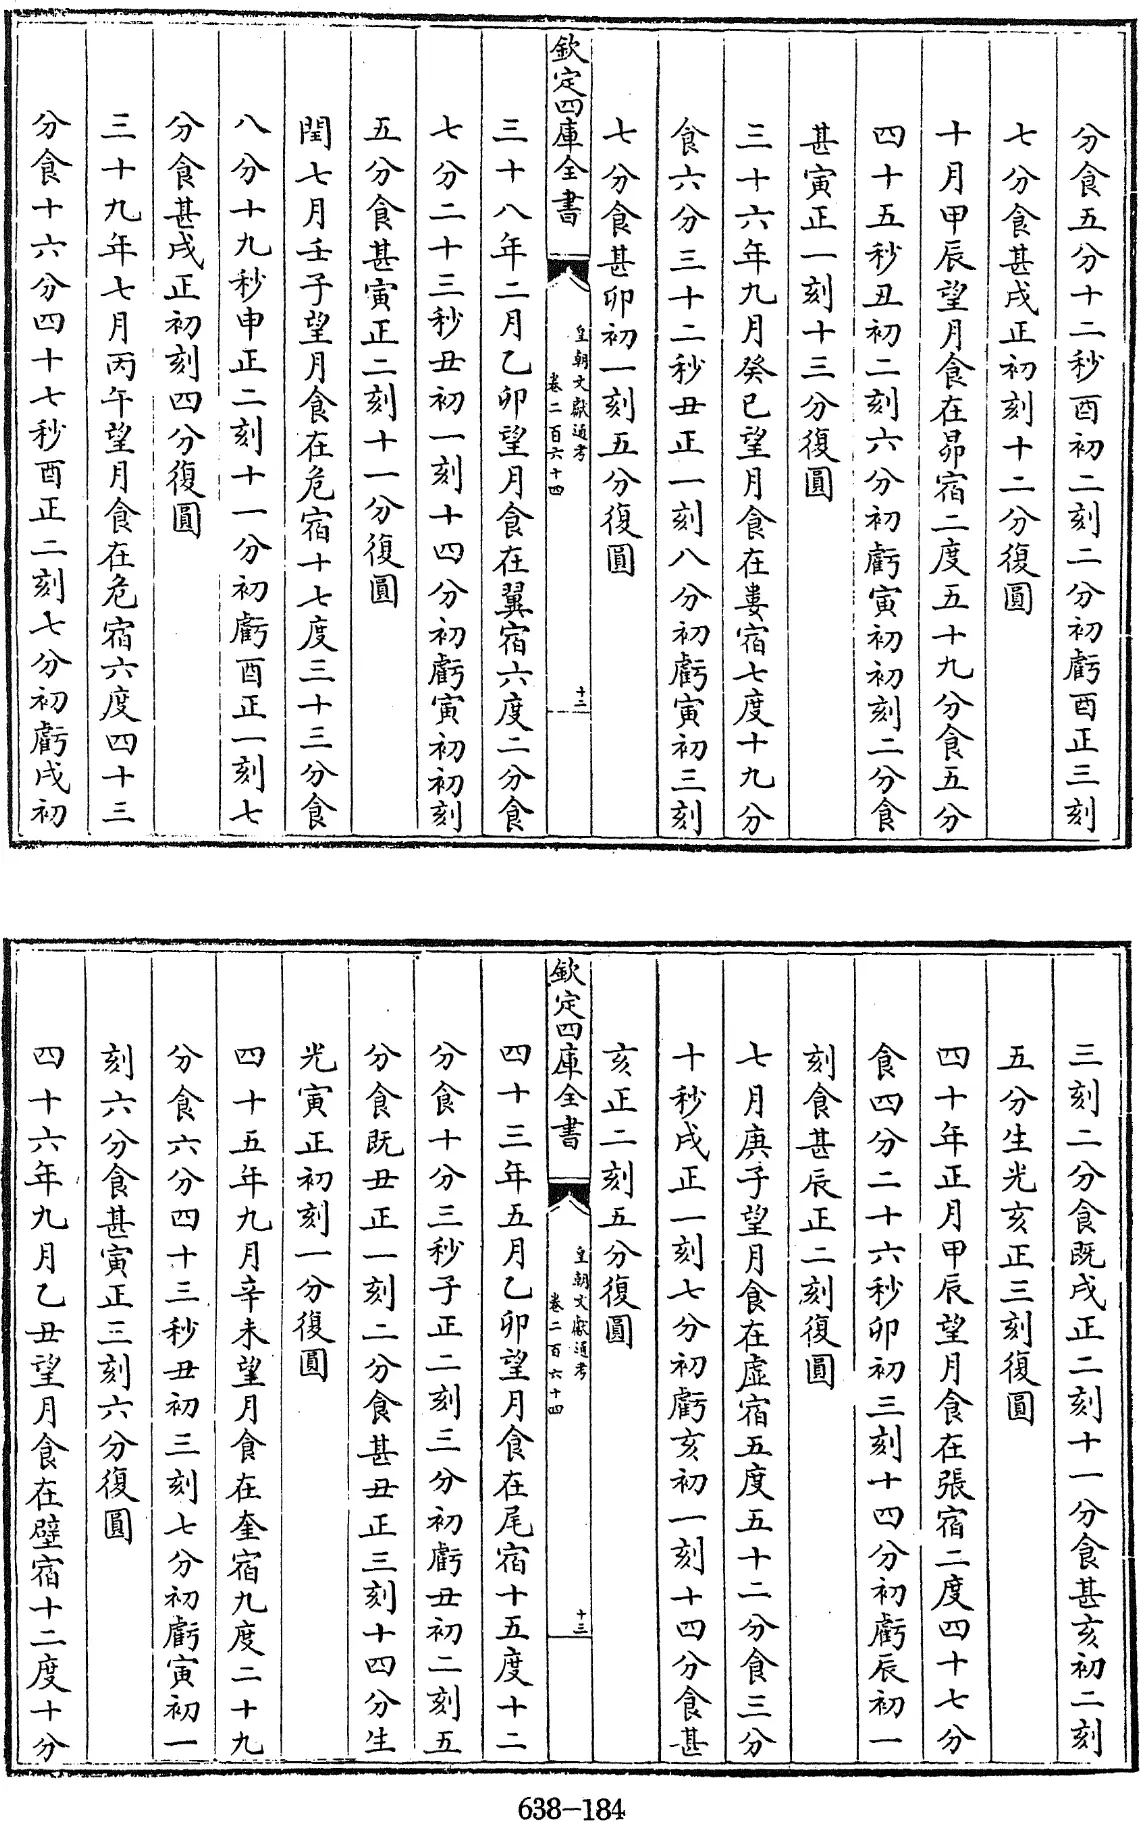 分食五分十二秒酉初二刻二分初虧酉正三刻
七分食甚戌正初刻十二分復圓
十月甲辰望月食在昴宿二度五十九分食五分
四十五秒丑初二刻六分初虧寅初初刻二分食
甚寅正一刻十三分復圓
三十六年九月癸巳望月食在婁宿七度十九分
食六分三十二秒丑正一刻八分初虧寅初三刻
七分食甚卯初一刻五分復圓
欽定四庫全書
皇朝文獻通考
卷二百六十四
十二
三十八年二月乙卯望月食在翼宿六度二分食
七分二十三秒丑初一刻十四分初虧寅初初刻
五分食甚寅正二刻十一分復圓
閏七月壬子望月食在危宿十七度三十三分食
八分十九秒申正二刻十一分初虧酉正一刻七
分食甚戌正初刻四分復圓
三十九年七月丙午望月食在危宿六度四十三
分食十六分四十七秒酉正二刻七分初虧戌初
三刻二分食既戌正二刻十一分食甚亥初二刻
五分生光亥正三刻復圓
四十年正月甲辰望月食在張宿二度四十七分
食四分二十六秒卯初三刻十四分初虧辰初一
刻食甚辰正二刻復圓
七月庚子望月食在虛宿五度五十二分食三分
十秒戌正一刻七分初虧亥初一刻十四分食甚
亥正二刻五分復圓
欽定四庫全書
皇朝文獻通考
卷二百六十四
十三
四十三年五月乙卯望月食在尾宿十五度十二
分食十分三秒子正二刻三分初虧丑初二刻五
分食既丑正一刻二分食甚丑正三刻十四分生
光寅正初刻一分復圓
四十五年九月辛未望月食在奎宿九度二十九
分食六分四十三秒丑初三刻七分初虧寅初一
刻六分食甚寅正三刻六分復圓
四十六年九月乙丑望月食在壁宿十二度十分
638-184